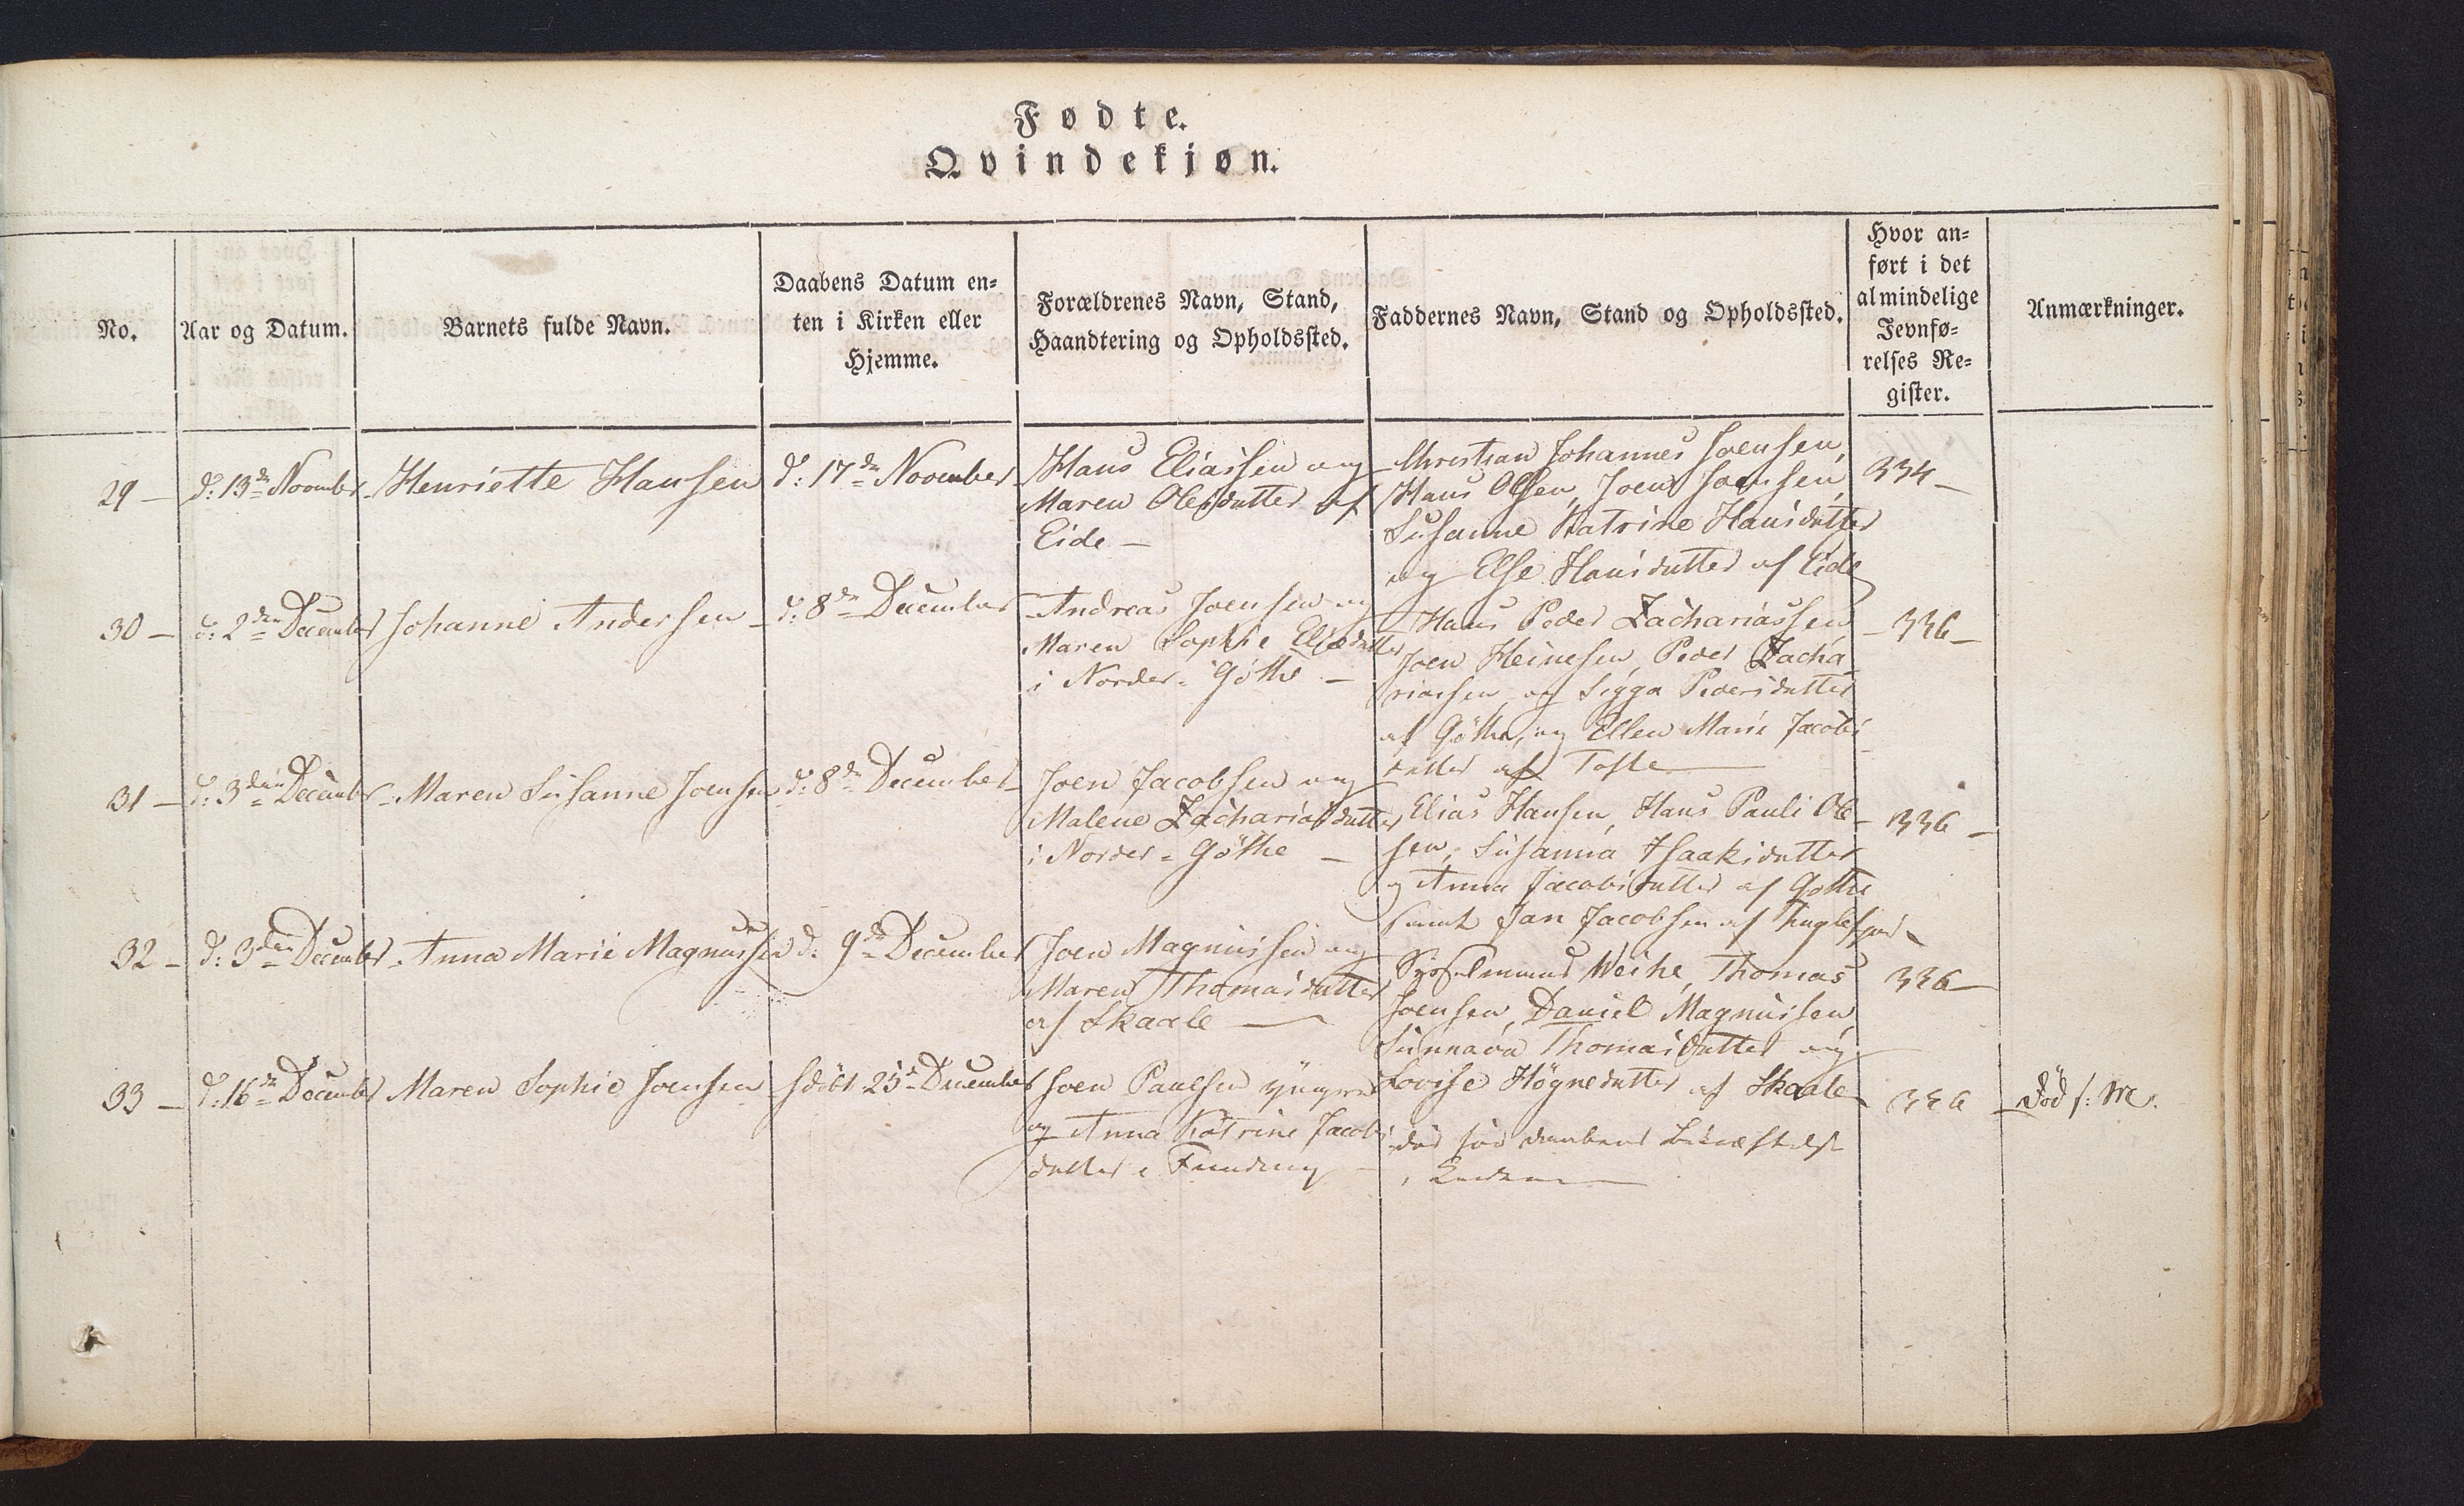 Fødte.
Qvindekjøn.
No.
Aar og Datum.
Barnets fulde Navn.
Daabens Datum en-
ten i Kirken eller
Hjemme.
Forældrenes Navn, Stand,
Haandtering og Opholdssted.
Faddernes Navn, Stand og Opholdssted.
Hvor an-
ført i det
almindelige
Jevnfø-
relses Re-
gister.
Anmærkninger.
29 —
d: 13de November
Henriette Hansen
d: 17de November
Hans Eliassen og
Maren Olesdatter af
Eide —
Christian Johannes Joensen,
Hans Olsen, Joen Joensen,
Susanne Katrine Hansdatter
og Else Hansdatter af Eide
334 —
30 —
d: 2den December
Johanne Andersen
d: 8de December
Andreas Joensen og
Maren Sophie Eliædatter
i Norder-Göthe —
Hans Peder Zachariassen
Joen Heinesen, Peder Zacha
riassen og Sigga Pedersdatter
af Göthe, og Ellen Marie Jacobs
datter af Tofte
— 336 —
31 —
d: 3den December
Maren Susanne Joensen
d: 8de December
Joen Jacobsen og
Malene Zachariasdatter
i Norder-Göthe —
Elias Hansen, Hans Pauli Ole-
sen, Susanna Isaaksdatter
og Anna Jacobsdatter af Göthe
samt Jan Jacobsen af Fuglefjord
336 —
32 —
d: 3den December
Anna Marie Magnussen
d: 9de December
Joen Magnussen og
Maren Thomasdatter
af Skaale —
Sysselmand Weihe, Thomas
Joensen, Daniel Magnussen
Sunnava Thomasdatter og
Lovise Högnedatter af Skaale
336 —
33 —
d: 16de December
Maren Sophie Joensen
25de December
Joen Paulsen yngre
og Anna Katrine Jacobs
datter i Funding —
död för daabens Bekræftelse
i Kirken
336
Död s: M.